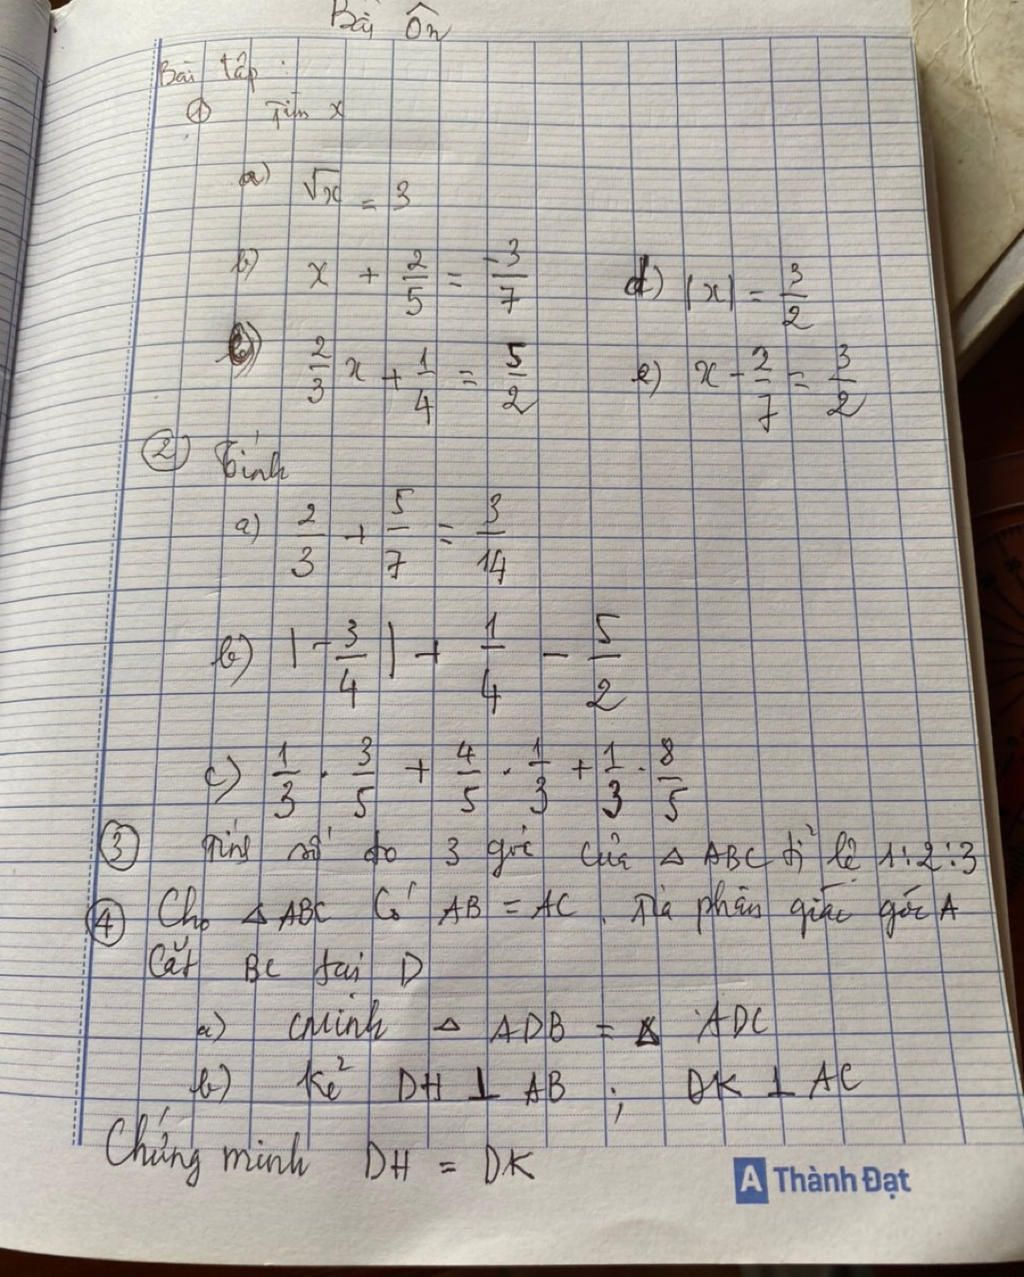 Bài Ôn
Bài tập :
① Tìm x
a) √x = 3
b) x + 2/5 = -3/7 d) |x| = 3/2
c) 2/3 x + 1/4 = 5/2 e) x - 2/7 = 3/2
② Tính
a) 2/3 + 5/7 = 3/14
b) |-3/4| + 1/4 - 5/2
c) 1/3 . 3/5 + 4/5 . 1/3 + 1/3 . 8/5
③ Tính số đo 3 góc của △ ABC tỉ lệ 1:2:3
④ Cho △ ABC có AB = AC . Tia phân giác góc A
Cắt BC tại D
a) CMinh △ ADB = △ ADC
b) Kẻ DH ⊥ AB ; DK ⊥ AC
Chứng minh DH = DK
A Thành Đạt